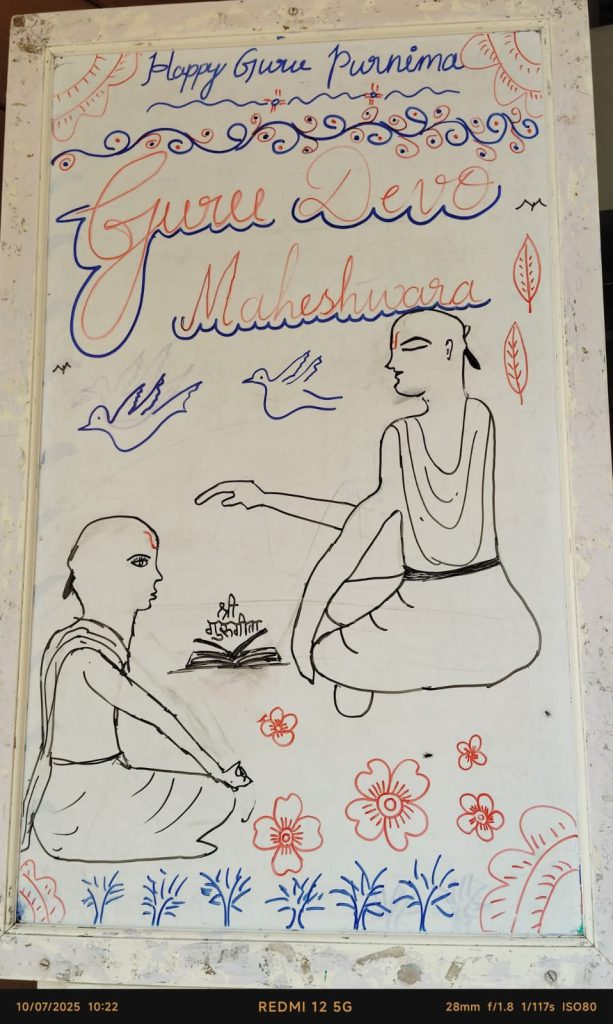 Happy Guru Purnima
Guru Devo
Maheshwara
श्री
गुरुगीता
10/07/2025 10:22
REDMI 12 5G
28mm f/1.8 1/117s ISO80